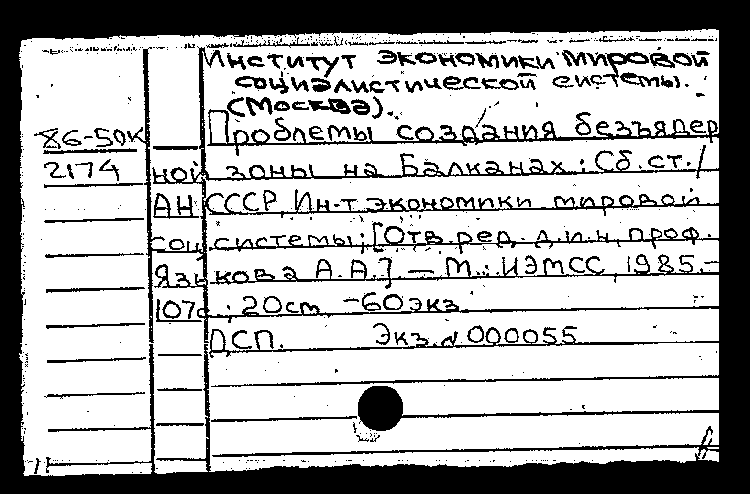 Институт экономики мировой
социалистической системы.
(Москва).
86-50К
Проблемы создания безъядер
2174
ной зоны на Балканах: Сб.ст./
АН СССР, Ин-т экономики мировой
соц.системы; [Отв.ред. д.и.н, проф.
Язькова А.А.] — М.: ИЭМСС, 1985.-
107с.; 20см -60экз.
ДСП. Экз.№000055